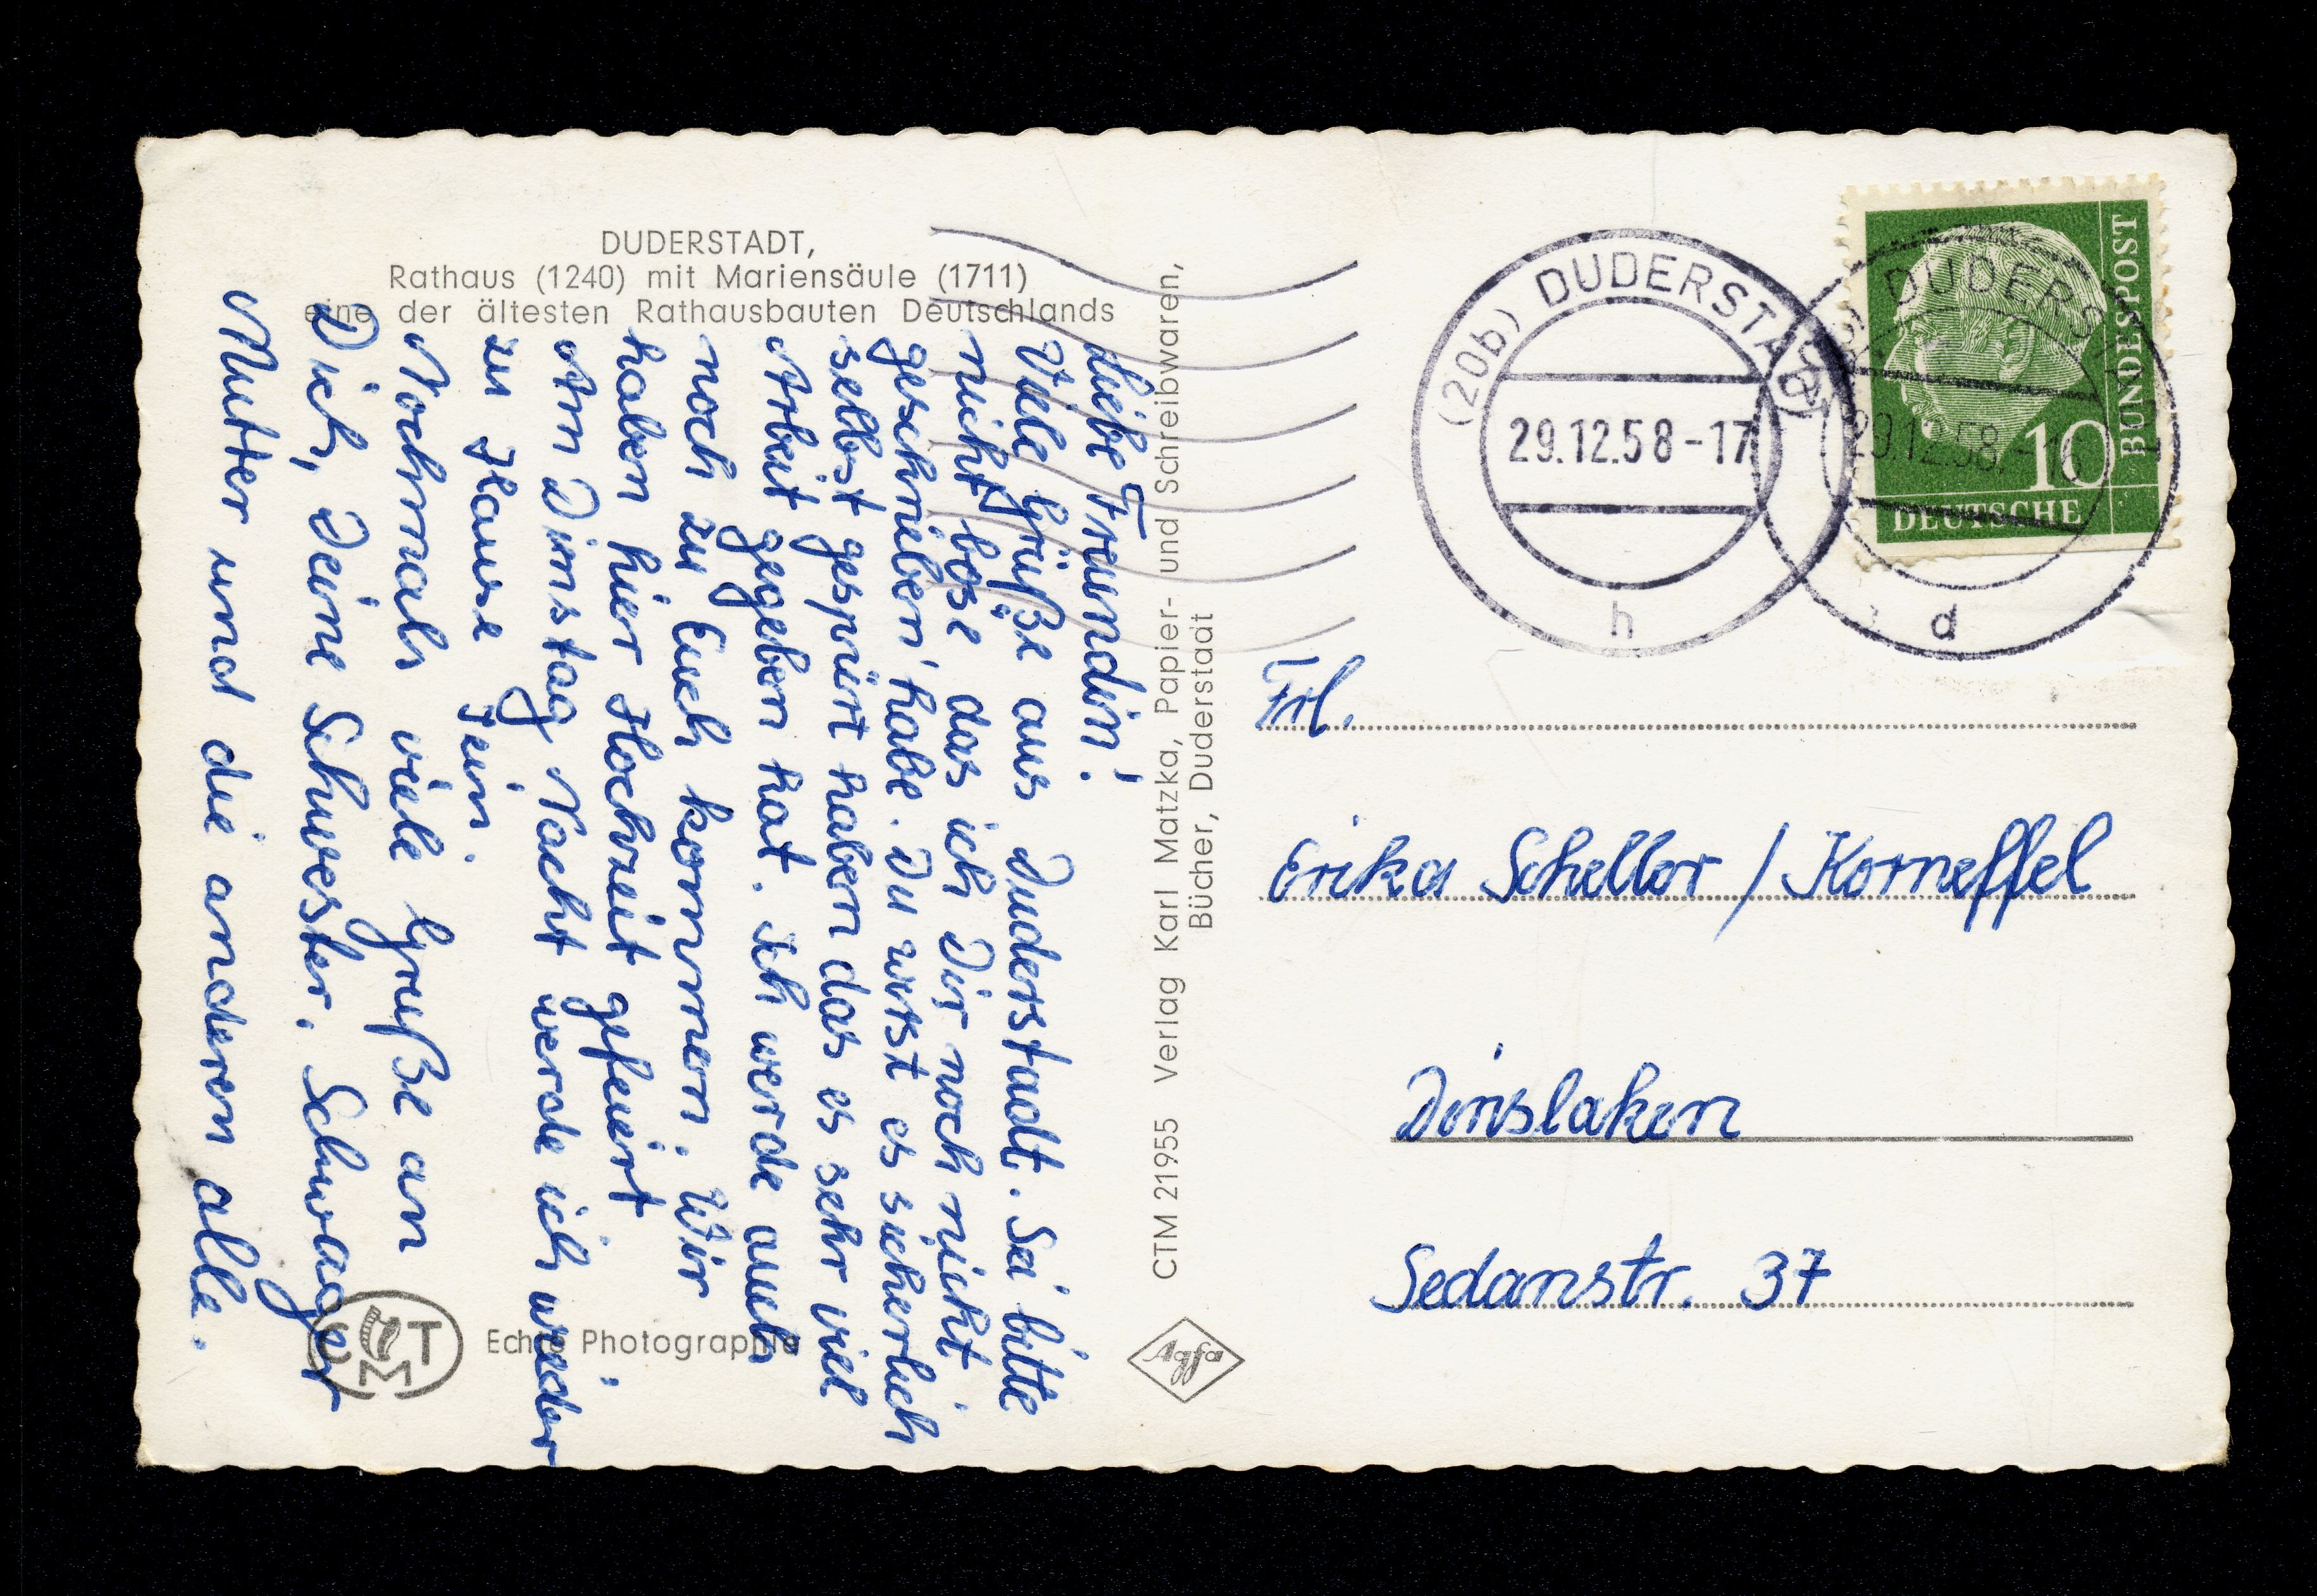 DUDERSTADT,
Rathaus (1240) mit Mariensäule (1711)
eine der ältesten Rathausbauten Deutschlands
Liebe Freundin!
Viele Grüße aus Duderstadt. Sei bitte
nicht böse das ich Dir noch nicht
geschrieben habe. Du wirst es sicherlich
selbst gespürt haben das es sehr viel
Arbeit gegeben hat. Ich werde auch
noch zu Euch kommen. Wir
haben hier Hochzeit gefeiert.
Am Dinstag Nacht werde ich wieder
zu Hause sein.
Nochmals viele Grüße an
Dich, Deine Schwester, Schwager
Mutter und die anderen alle.
CTM
Echte Photographie
CTM 21955 Verlag Karl Matzka, Papier- und Schreibwaren,
Bücher, Duderstadt
Agfa
(20b) DUDERSTADT
29.12.58-17
h
DUDERS
29.12.58.-16
d
10
DEUTSCHE
BUNDESPOST
Frl.
Erika Scheller / Korneffel
Dinslaken
Sedanstr. 37